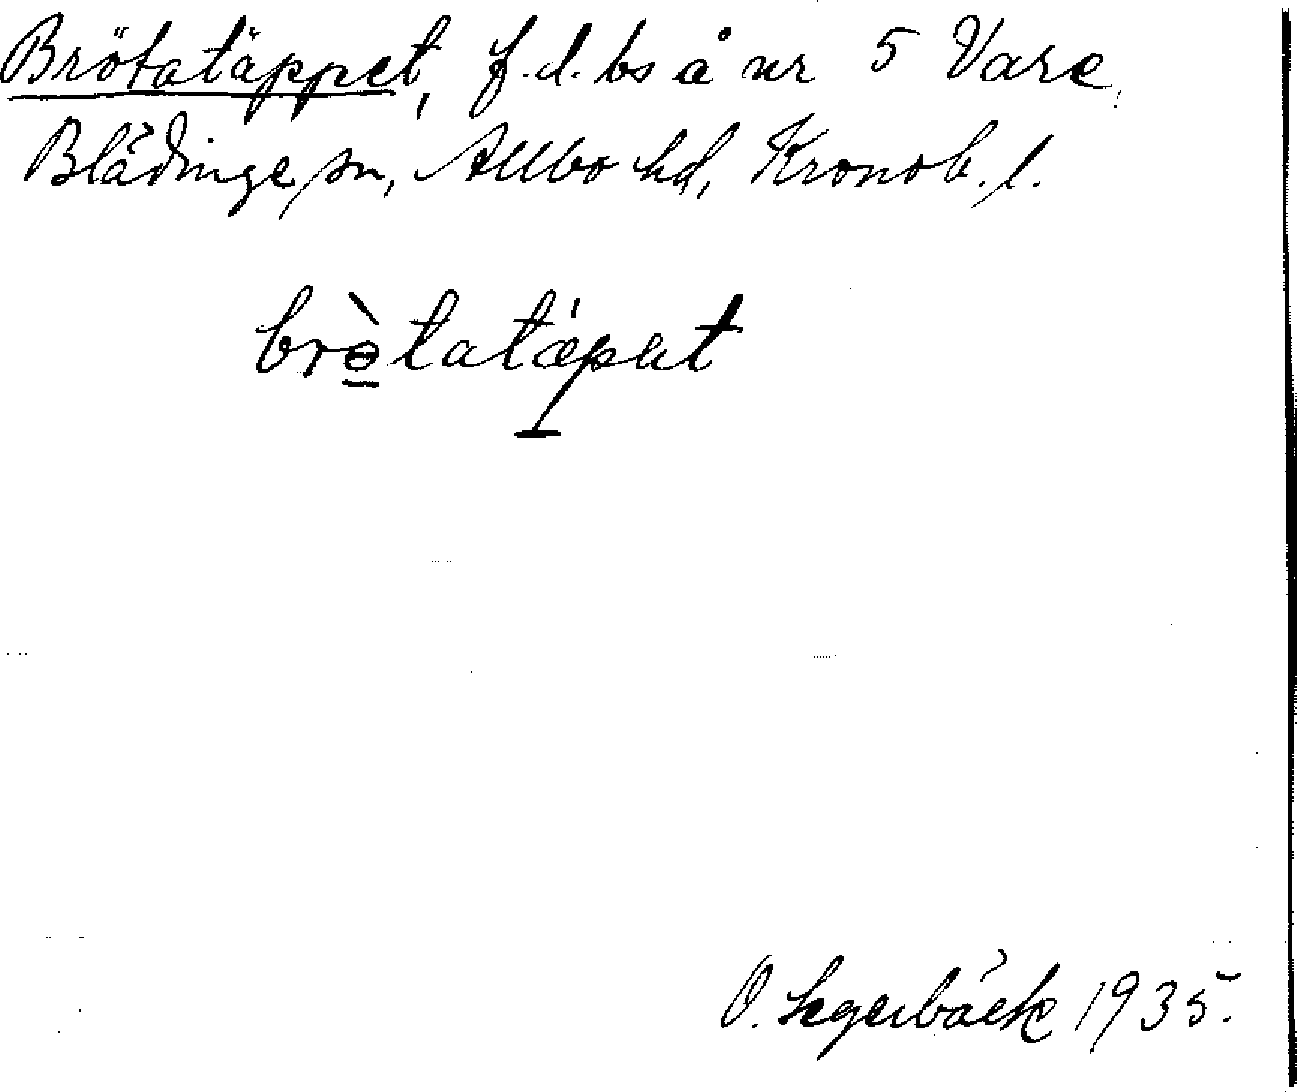 Brötatäppet, f.d. bs å nr 5 Vare,
Blädinge sn, Allbo hd, Kronob. l.
brɵ̀tatæ̀pət
O. Segerbäck 1935.